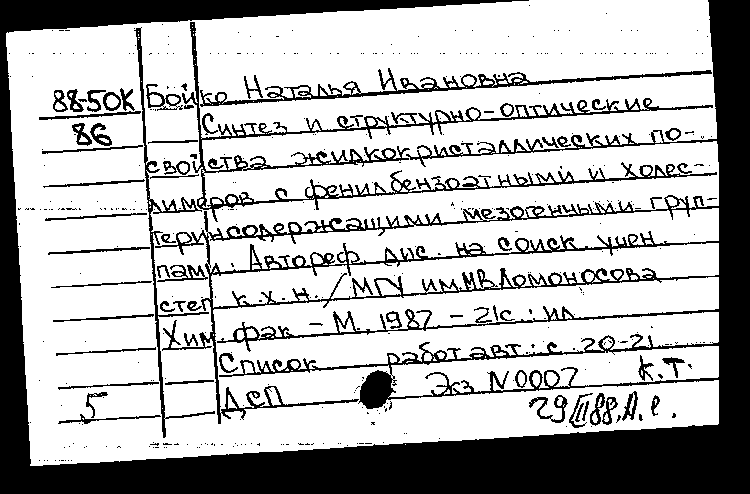 88-50К Бойко Наталья Ивановна
86 Синтез и структурно-оптические
свойства жидкокристаллических по-
лимеров с фенилбензоатными и холес-
теринсодержащими мезогенными груп-
пами: Автореф. дис. на соиск. учен.
степ. к. х. н. / МГУ им. М В Ломоносова
Хим. фак. - М., 1987. - 21с.: ил
Список работ авт.: с. 20-21
5 ДСП Экз N 0007 К.Т.
29/II 88. А. е.